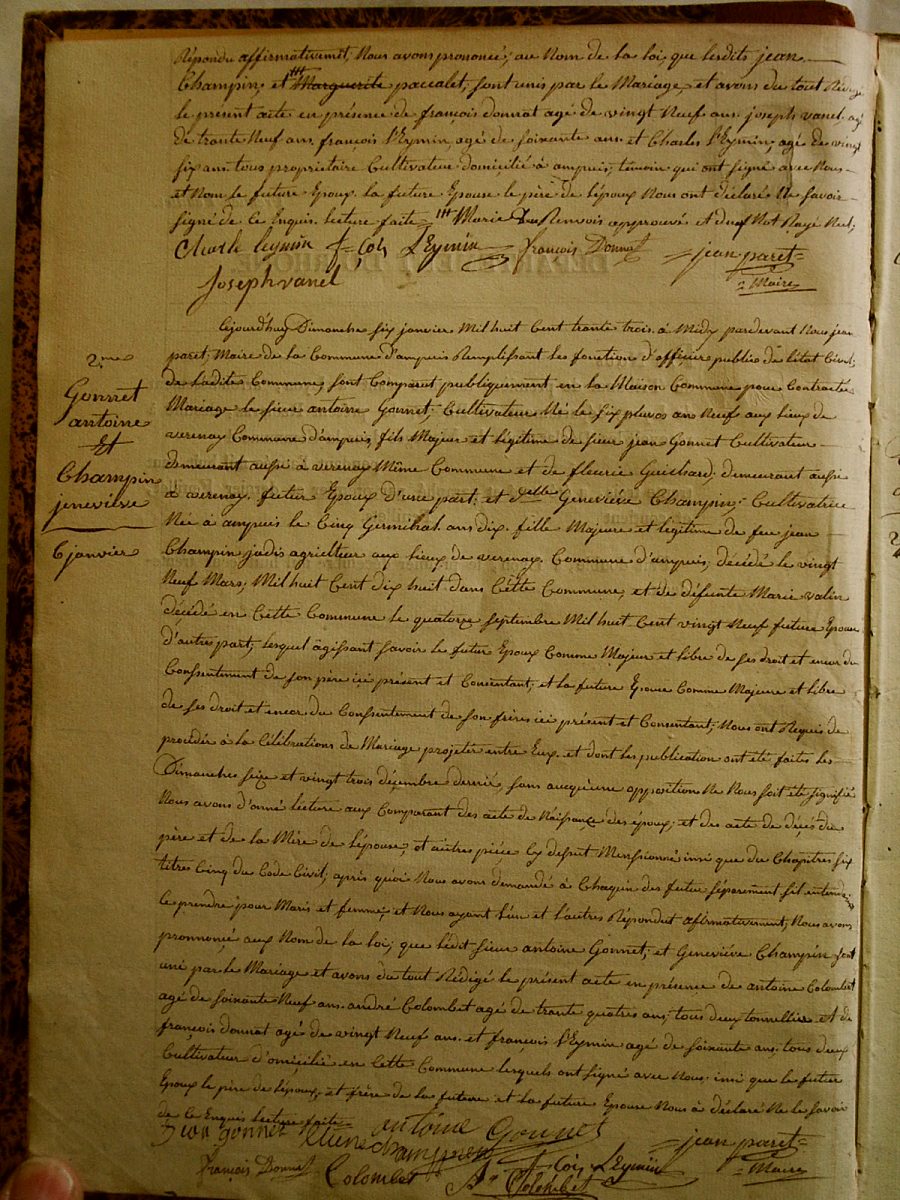 Répondu affirmativemet, Nous avons prononcé; au Nom de la loi, que lesdits jean
Champin; et Marguerite paccalet; sont unis par le Mariage, et avons du tout Rédigé
le présent acte en présence de françois donnat agé de vingt Neuf ans. joseph vanel agé
de trante Neuf ans. françois l'Eymin, agé de soixante ans. et Charles l'Eymin; agé de vingt
six ans. tous propriétaire Cultivateur domicilié à ampuis; témoin qui ont signé avec Nous
et Nom le future Epoux la future Epouse le père de l'époux Nous ont déclaré Ne savoir
signé de Ce Enquis. lecture faite. Marie Renvois approuvé et Mot Rayé Nul;
Charle leymin fcois LEymin François Donnat jean paret
Maire
Joseph vanel
Cejourd'huy Dimanche six janvier Mil huit Cent trante trois. à Midy pardevant Nous jean
paret; Maire de la Commune d'ampuis Remplissant les fonction d'officier publics de létat Civil;
de laditte Commune, sont Comparut publiquement en la Maison Commune pour Contracter
2.me
Gonnet
antoine
Et
Champin
jeneviève
6 janvier
Mariage le sieur antoine Gonnet; Cultivateur Né le six pluvos an Neuf aux lieux de
verenay Commune d'ampuis, fils Majeur et légitime de sieur jean Gonnet Cultivateur
demeurant aussi à verenay Même Commune et de fleurie Guichard; demeurant aussi
à verenay. futur Epoux d'une part; et delle Geneviéve Champin; Cultivatrice
Née à ampuis le Cinq Germinal. ans dix. fille Majeure et légitime de feu jean
Champin jadis agriculteur aux lieux de verenay Commune d'ampuis; décédé le vingt
Neuf Mars, Mil huit Cent dix huit dans Cette Commune, et de défunte Marie valin
décédé en Cette Commune le quatorze septembre Mil huit Cent vingt Neuf future Epouse
d'autre part; lesquel agissant savoir le futur Epoux Comme Majeur et libre de ses droit et encor du
Consentement de son père ici présent et Consentant; et la future Epouse Comme Majeure et libre
de ses droit et encor du Consentement de son frères ici présent et Consentant; Nous ont Requis de
procédér à la Célébrations de Mariage projeter entre Eux. et dont les publication ont été faites les
Dimanches seize et vingt trois décembre dernié, sans aucune opposition Ne Nous soit été signifié
Nous avons d'onné lecture aux Comparant des acte de Naissance des époux; et des acte de décés du
père et de la Mère de l'épouse, et autres pièce Cy dessut Menssionné insi que du Chapitres six
titres Cinq du Code Civil; après quoi Nous avons demandé à Chaqun des futur séparement s'il entende
le prendre pour Maris et femme; et Nous ayant l'un et l'autres Répondut afirmativement; Nous avons
prononcé aux Nom de la loi; que lédit sieur antoine Gonnet, et Geneviéve Champin sont
uni par le Mariage et avons du tout Rédigé le présent acte en présence de antoine Colombet
agé de soixante Neuf ans. andré Colombet agé de trante quatres ans; tous deux tonnellier. et de
françois donnat agé de vingt Neuf ans. et françois l'Eymin agé de soixante ans. tous deux
Cultivateur d'omicilié en Cette Commune lesquels ont signé avec Nous. insi que le futur
Epoux le père de l'époux; et frère de la future et la future Epouse Nous à déclaré Ne le savoir
de Ce Enquis lecture faite
jean gonnet Etiene champin antoine Gonnet jean paret
Maire
François Donnat Colombet A Colombet fcois LEymin